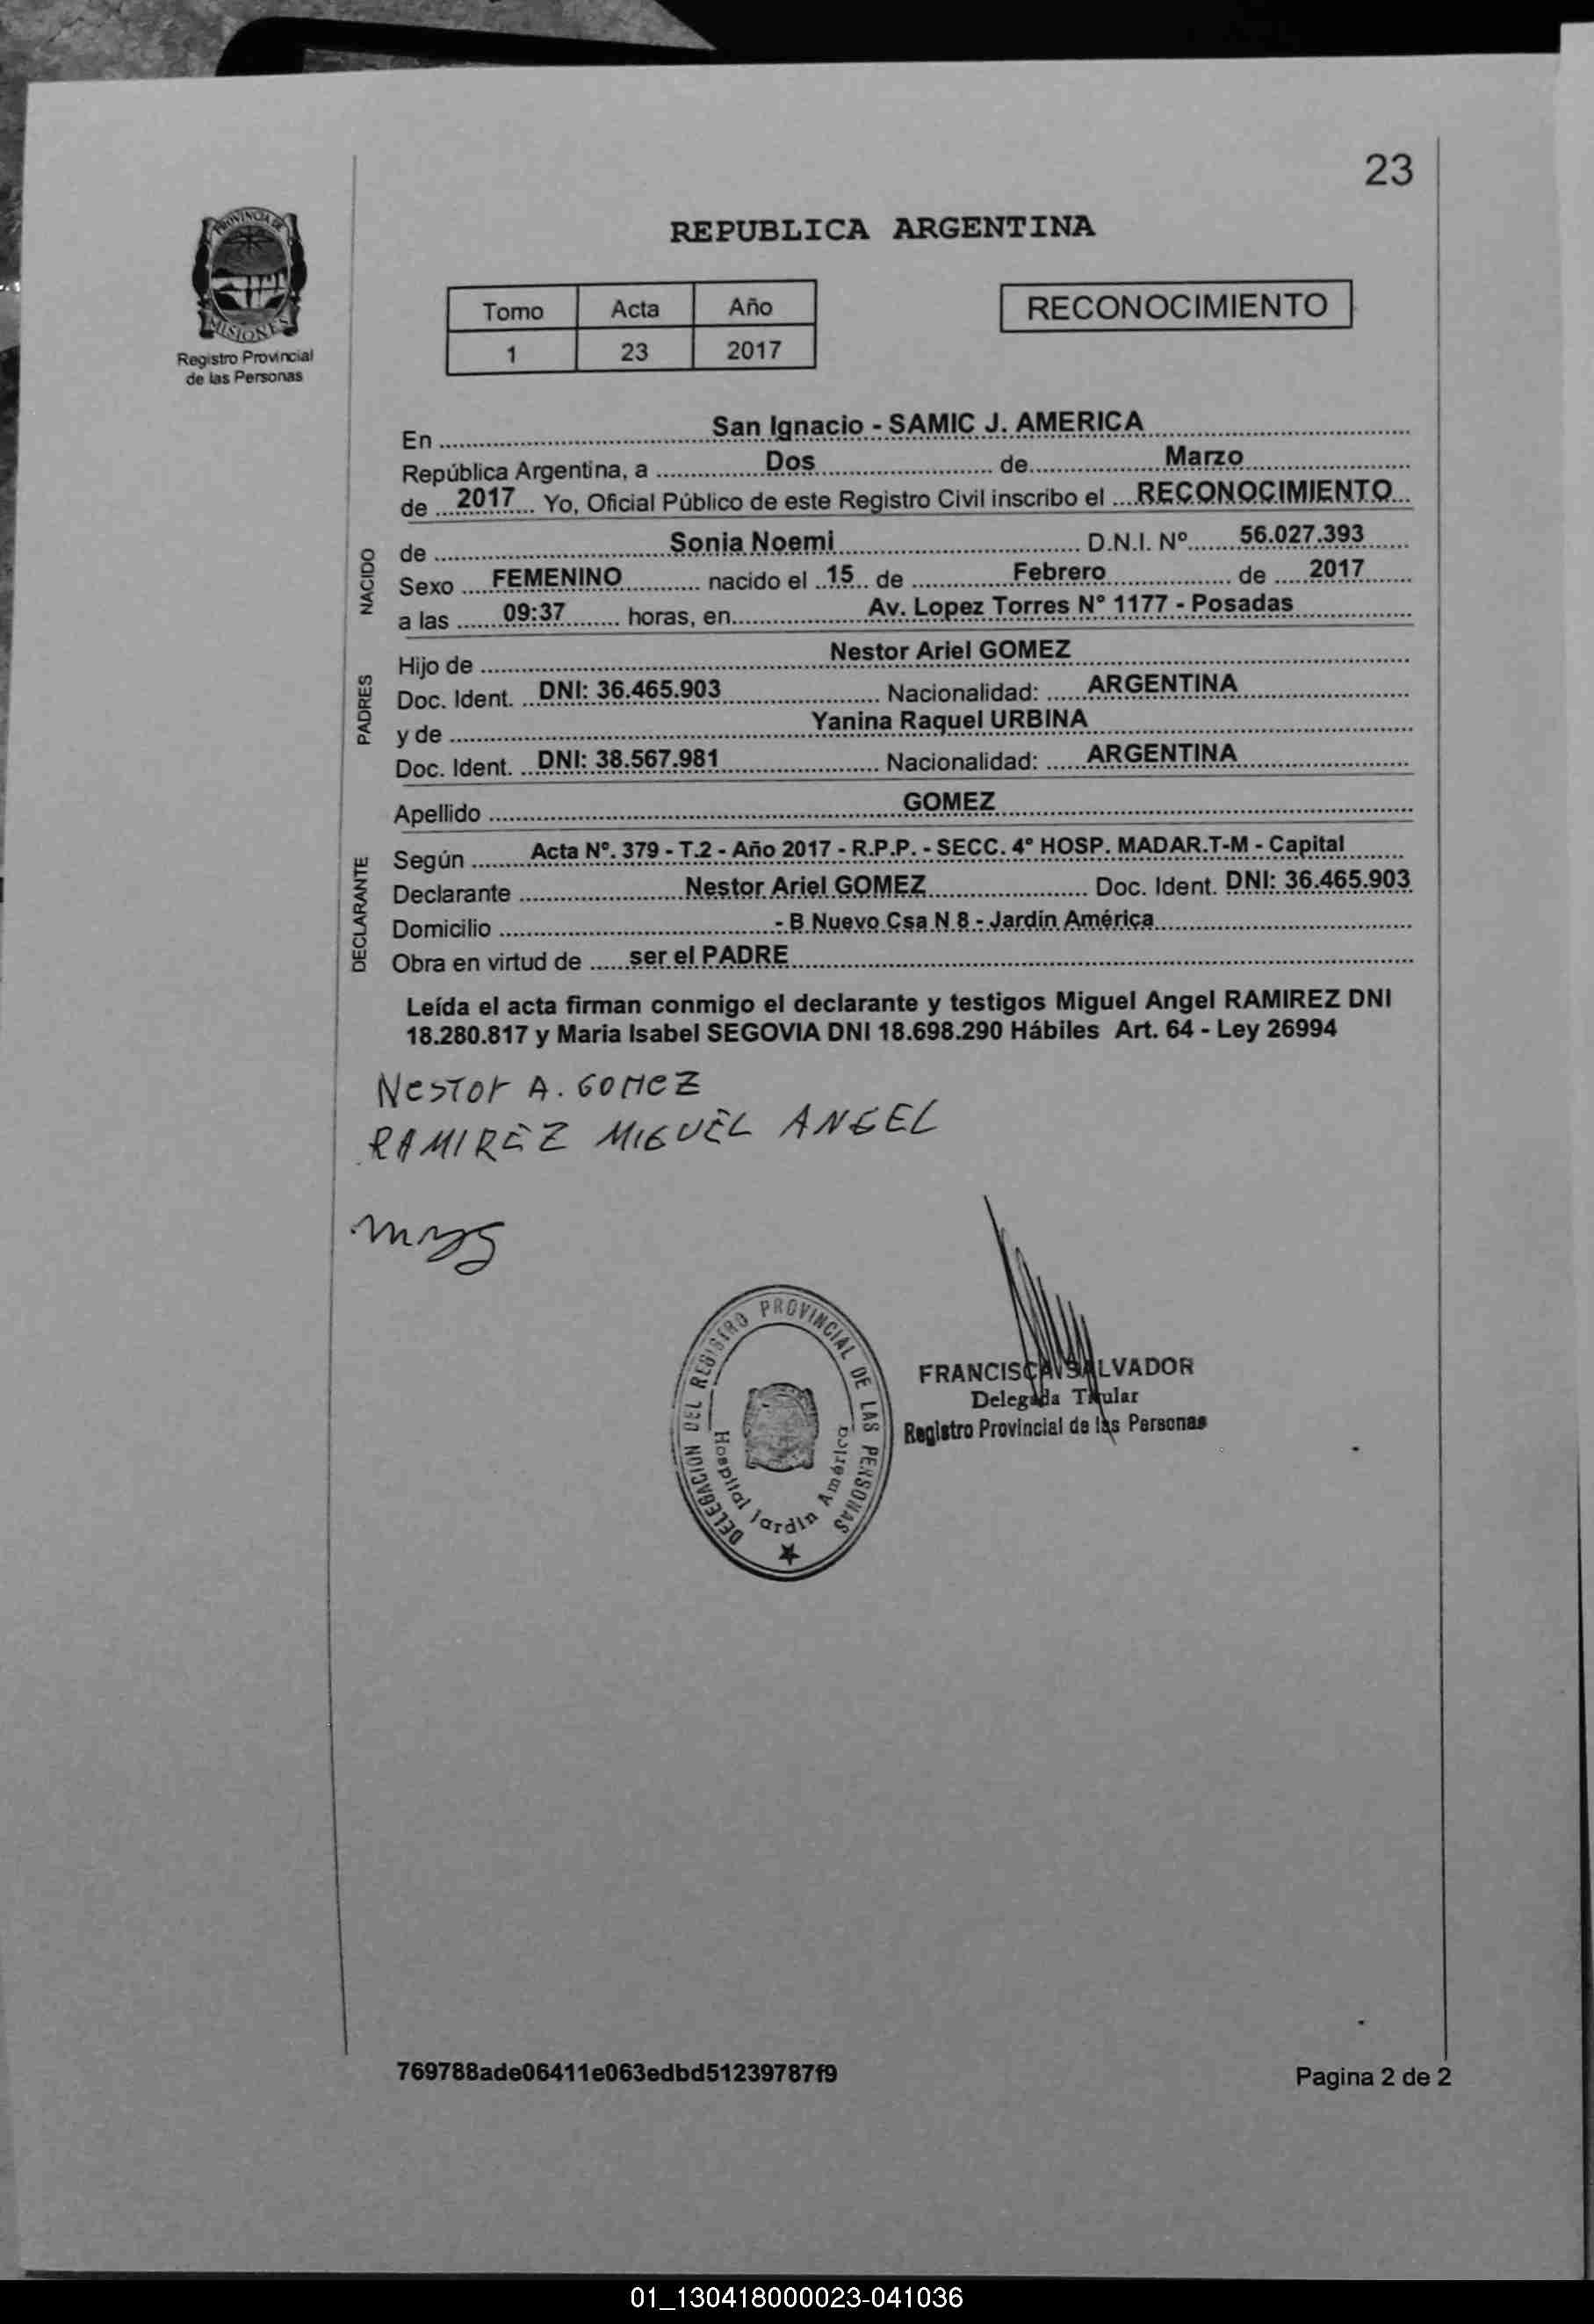 23
PROVINCIA DE
MISIONES
Registro Provincial
de las Personas
REPUBLICA ARGENTINA
Tomo Acta Año
1 23 2017
RECONOCIMIENTO
En San Ignacio - SAMIC J. AMERICA
República Argentina, a Dos de Marzo
de 2017 Yo, Oficial Público de este Registro Civil inscribo el RECONOCIMIENTO
NACIDO
de Sonia Noemi D.N.I. Nº 56.027.393
Sexo FEMENINO nacido el 15 de Febrero de 2017
a las 09:37 horas, en Av. Lopez Torres N° 1177 - Posadas
PADRES
Hijo de Nestor Ariel GOMEZ
Doc. Ident. DNI: 36.465.903 Nacionalidad: ARGENTINA
y de Yanina Raquel URBINA
Doc. Ident. DNI: 38.567.981 Nacionalidad: ARGENTINA
Apellido GOMEZ
DECLARANTE
Según Acta Nº. 379 - T.2 - Año 2017 - R.P.P. - SECC. 4° HOSP. MADAR.T-M - Capital
Declarante Nestor Ariel GOMEZ Doc. Ident. DNI: 36.465.903
Domicilio - B Nuevo Csa N 8 - Jardín América
Obra en virtud de ser el PADRE
Leída el acta firman conmigo el declarante y testigos Miguel Angel RAMIREZ DNI
18.280.817 y Maria Isabel SEGOVIA DNI 18.698.290 Hábiles Art. 64 - Ley 26994
Nestor A. Gomez
RAMIREZ MIGUEL ANGEL
DELEGACION DEL REGISTRO PROVINCIAL DE LAS PERSONAS
Hospital Jardín América
FRANCISCA SALVADOR
Delegada Titular
Registro Provincial de las Personas
769788ade06411e063edbd51239787f9
Pagina 2 de 2
01_130418000023-041036